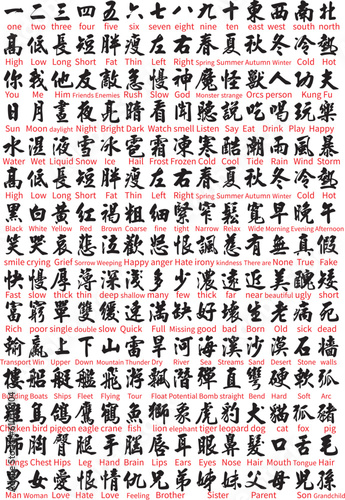 一二三四五六七八九十東西南北
one two three four five six seven eight nine ten east west south north
高低長短胖瘦左右春夏秋冬冷熱
High Low Long Short Fat Thin Left Right Spring Summer Autumn Winter Cold Hot
你我他友敵急慢神魔怪獸人功夫
You Me Him Friends Enemies Rush Slow God Monster strange Orcs person Kung Fu
日月晝夜亮暗看聞聽說吃喝玩樂
Sun Moon daylight Night Bright Dark Watch smell Listen Say Eat Drink Play Happy
水濕液雪冰雹霜凍寒酷潮雨風暴
Water Wet Liquid Snow Ice Hail Frost Frozen Cold Cool Tide Rain Wind Storm
高低長短胖瘦左右春夏秋冬冷熱
High Low Long Short Fat Thin Left Right Spring Summer Autumn Winter Cold Hot
黑白黃紅褐粗細緊窄鬆寬早晚午
Black White Yellow Red Brown Coarse fine tight Narrow Relax Wide Morning Evening Afternoon
笑哭哀悲泣歡怒恨諷慈有無真假
smile crying Grief Sorrow Weeping Happy anger Hate irony kindness There are None True Fake
快慢厚薄深淺多少濃遠近美醜矮
Fast slow thick thin deep shallow many few thick far near beautiful ugly short
富窮單雙緩速滿缺好壞生老病死
Rich poor single double slow Quick Full Missing good bad Born Old sick dead
輸贏上下山雷旱河海溪沙漠石牆
Transport Win Upper Down Mountain Thunder Dry River Sea Streams Sand Desert Stone walls
樓船艇艦飛游飄潛彈直彎硬軟弧
Building Boats Ships Fleet Flying Tour Float Potential Bomb straight Bend Hard Soft Arc
雞鳥鴿鷹鶴魚獅象虎豹犬貓狐豬
Chicken bird pigeon eagle crane fish lion elephant tiger leopard dog cat fox pig
肺胸臀腿手腦唇耳眼鼻髮口舌毛
Lungs Chest Hips Leg Hand Brain Lips Ears Eyes Nose Hair Mouth Tongue Hair
男女愛恨情仇兄弟姊妹父母子孫
Man Woman Love Hate Love Feeling Brother Sister Parent Son Grandchild